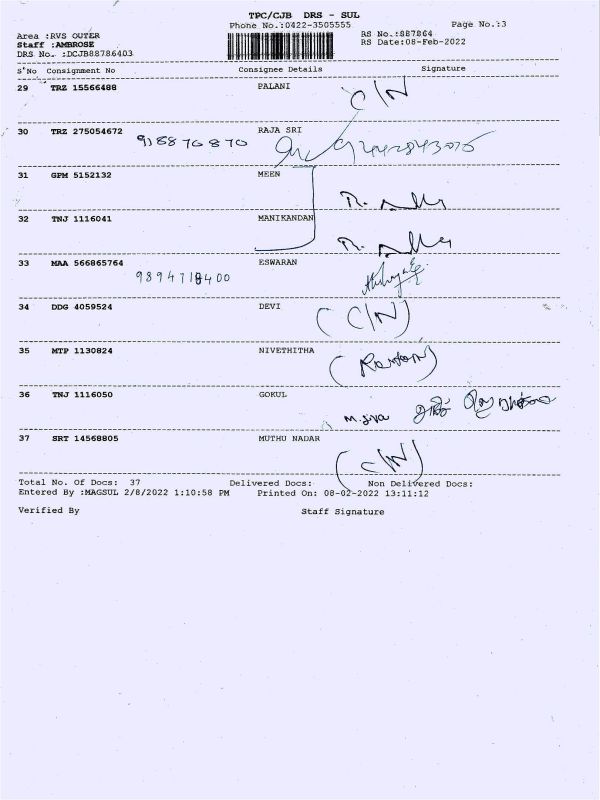 TPC/CJB DRS - SUL
Phone No.:0422-3505555 Page No.:3
Area :RVS OUTER RS No.:887864
Staff :AMBROSE RS Date:08-Feb-2022
DRS No. :DCJB88786403
S'No Consignment No Consignee Details Signature
29 TRZ 15566488 PALANI C/N
30 TRZ 275054672 RAJA SRI
31 GPM 5152132 MEEN
32 TNJ 1116041 MANIKANDAN
33 MAA 566865764 ESWARAN
9894718400
34 DDG 4059524 DEVI (C/N)
35 MTP 1130824 NIVETHITHA
36 TNJ 1116050 GOKUL
M.siva
37 SRT 14568805 MUTHU NADAR (C/N)
Total No. Of Docs: 37 Delivered Docs: Non Delivered Docs:
Entered By :MAGSUL 2/8/2022 1:10:58 PM Printed On: 08-02-2022 13:11:12
Verified By Staff Signature